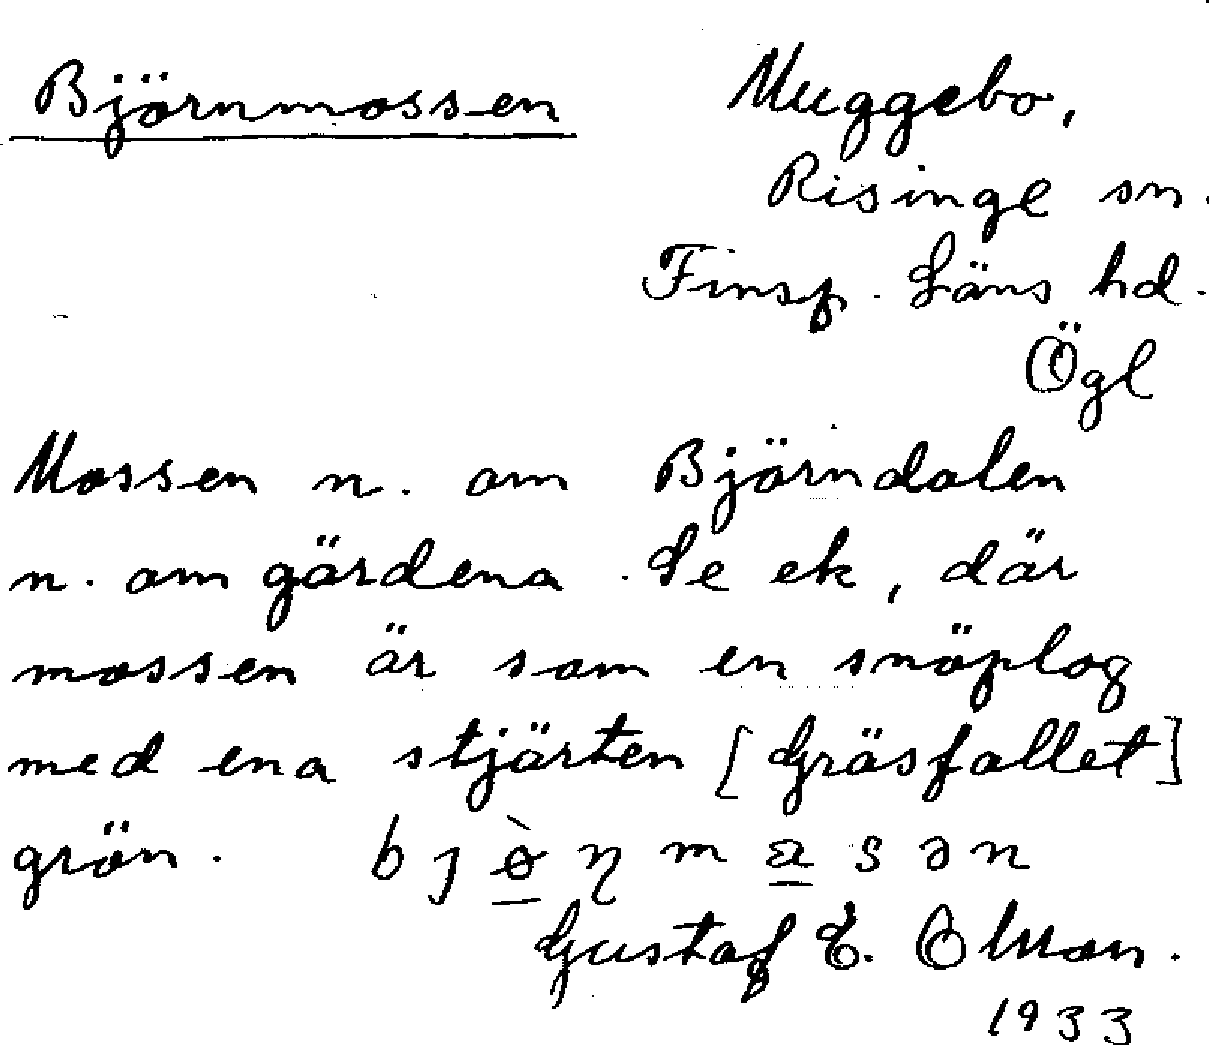 Björnmossen
Muggebo,
Risinge sn.
Finsp. Läns hd.
Ögl
Mossen n. om Björndalen
n. om gärdena. Se ek, där
mossen är som en snöplog
med ena stjärten [Gräsfallet]
grön.
Gustaf E. Olman.
1933